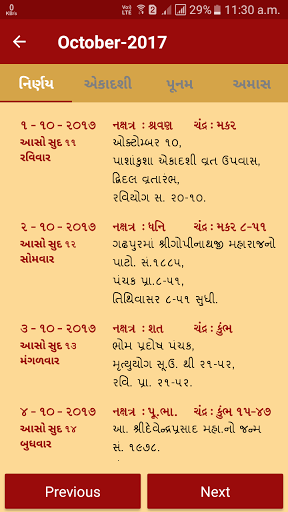 0 KB/s VoD LTE 29% 11:30 a.m.
October-2017
નિર્ણય એકાદશી પૂનમ અમાસ
૧ - ૧૦ - ૨૦૧૭ નક્ષત્ર : શ્રવણ ચંદ્ર : મકર
આસો સુદ ૧૧ ઓક્ટોમ્બર ૧૦,
રવિવાર પાશાંકુશા એકાદશી વ્રત ઉપવાસ,
દ્વિદલ વ્રતારંભ,
રવિયોગ સ. ૨૦-૧૦.
૨ - ૧૦ - ૨૦૧૭ નક્ષત્ર : ધનિ ચંદ્ર : મકર ૮-૫૧
આસો સુદ ૧૨ ગઢપુરમાં શ્રીગોપીનાથજી મહારાજનો
સોમવાર પાટો. સં.૧૮૮૫,
પંચક પ્રા.૮-૫૧,
તિથિવાસર ૮-૫૧ સુધી.
૩ - ૧૦ - ૨૦૧૭ નક્ષત્ર : શત ચંદ્ર : કુંભ
આસો સુદ ૧૩ ભોમ પ્રદોષ પંચક,
મંગળવાર મૃત્યુયોગ સૂ.ઉ. થી ૨૧-૫૨,
રવિ. પ્રા. ૨૧-૫૨.
૪ - ૧૦ - ૨૦૧૭ નક્ષત્ર : પૂ.ભા. ચંદ્ર : કુંભ ૧૫-૪૭
આસો સુદ ૧૪ આ. શ્રીદેવેન્દ્રપ્રસાદ મહા.નો જન્મ
બુધવાર સં. ૧૯૭૮.
Previous Next